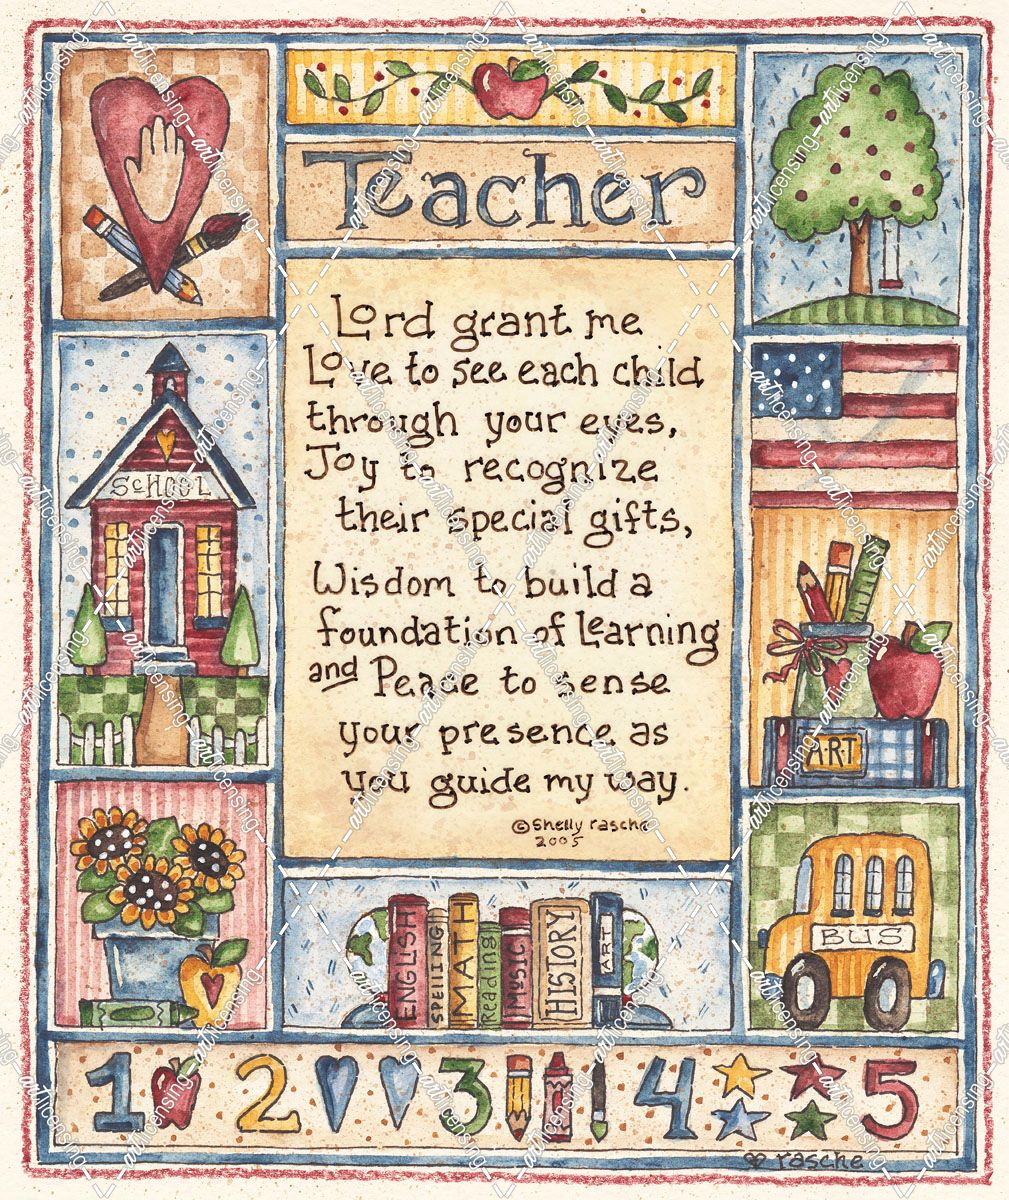 Teacher
Lord grant me
Love to see each child
through your eyes,
Joy to recognize
their special gifts,
Wisdom to build a
foundation of Learning
and Peace to sense
your presence as
you guide my way.
© Shelly rasche
2005
SCHOOL
A·R·T
BUS
ENGLISH
SPELLING
MATH
Reading
MUSIC
HISTORY
ART
1 2 3 4 5
rasche
artlicensing